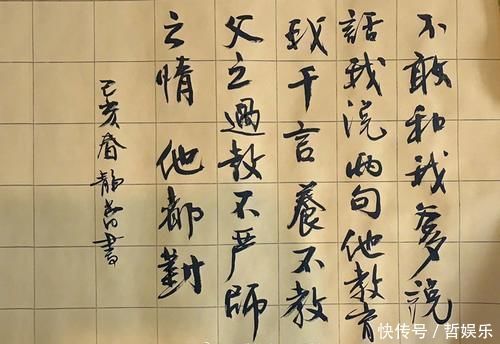 不敢和我爹説
話我说兩句他教育
我千言養不教
父之過教不严師
之情他都對
己亥春靜書
快传号 / 哲娱乐